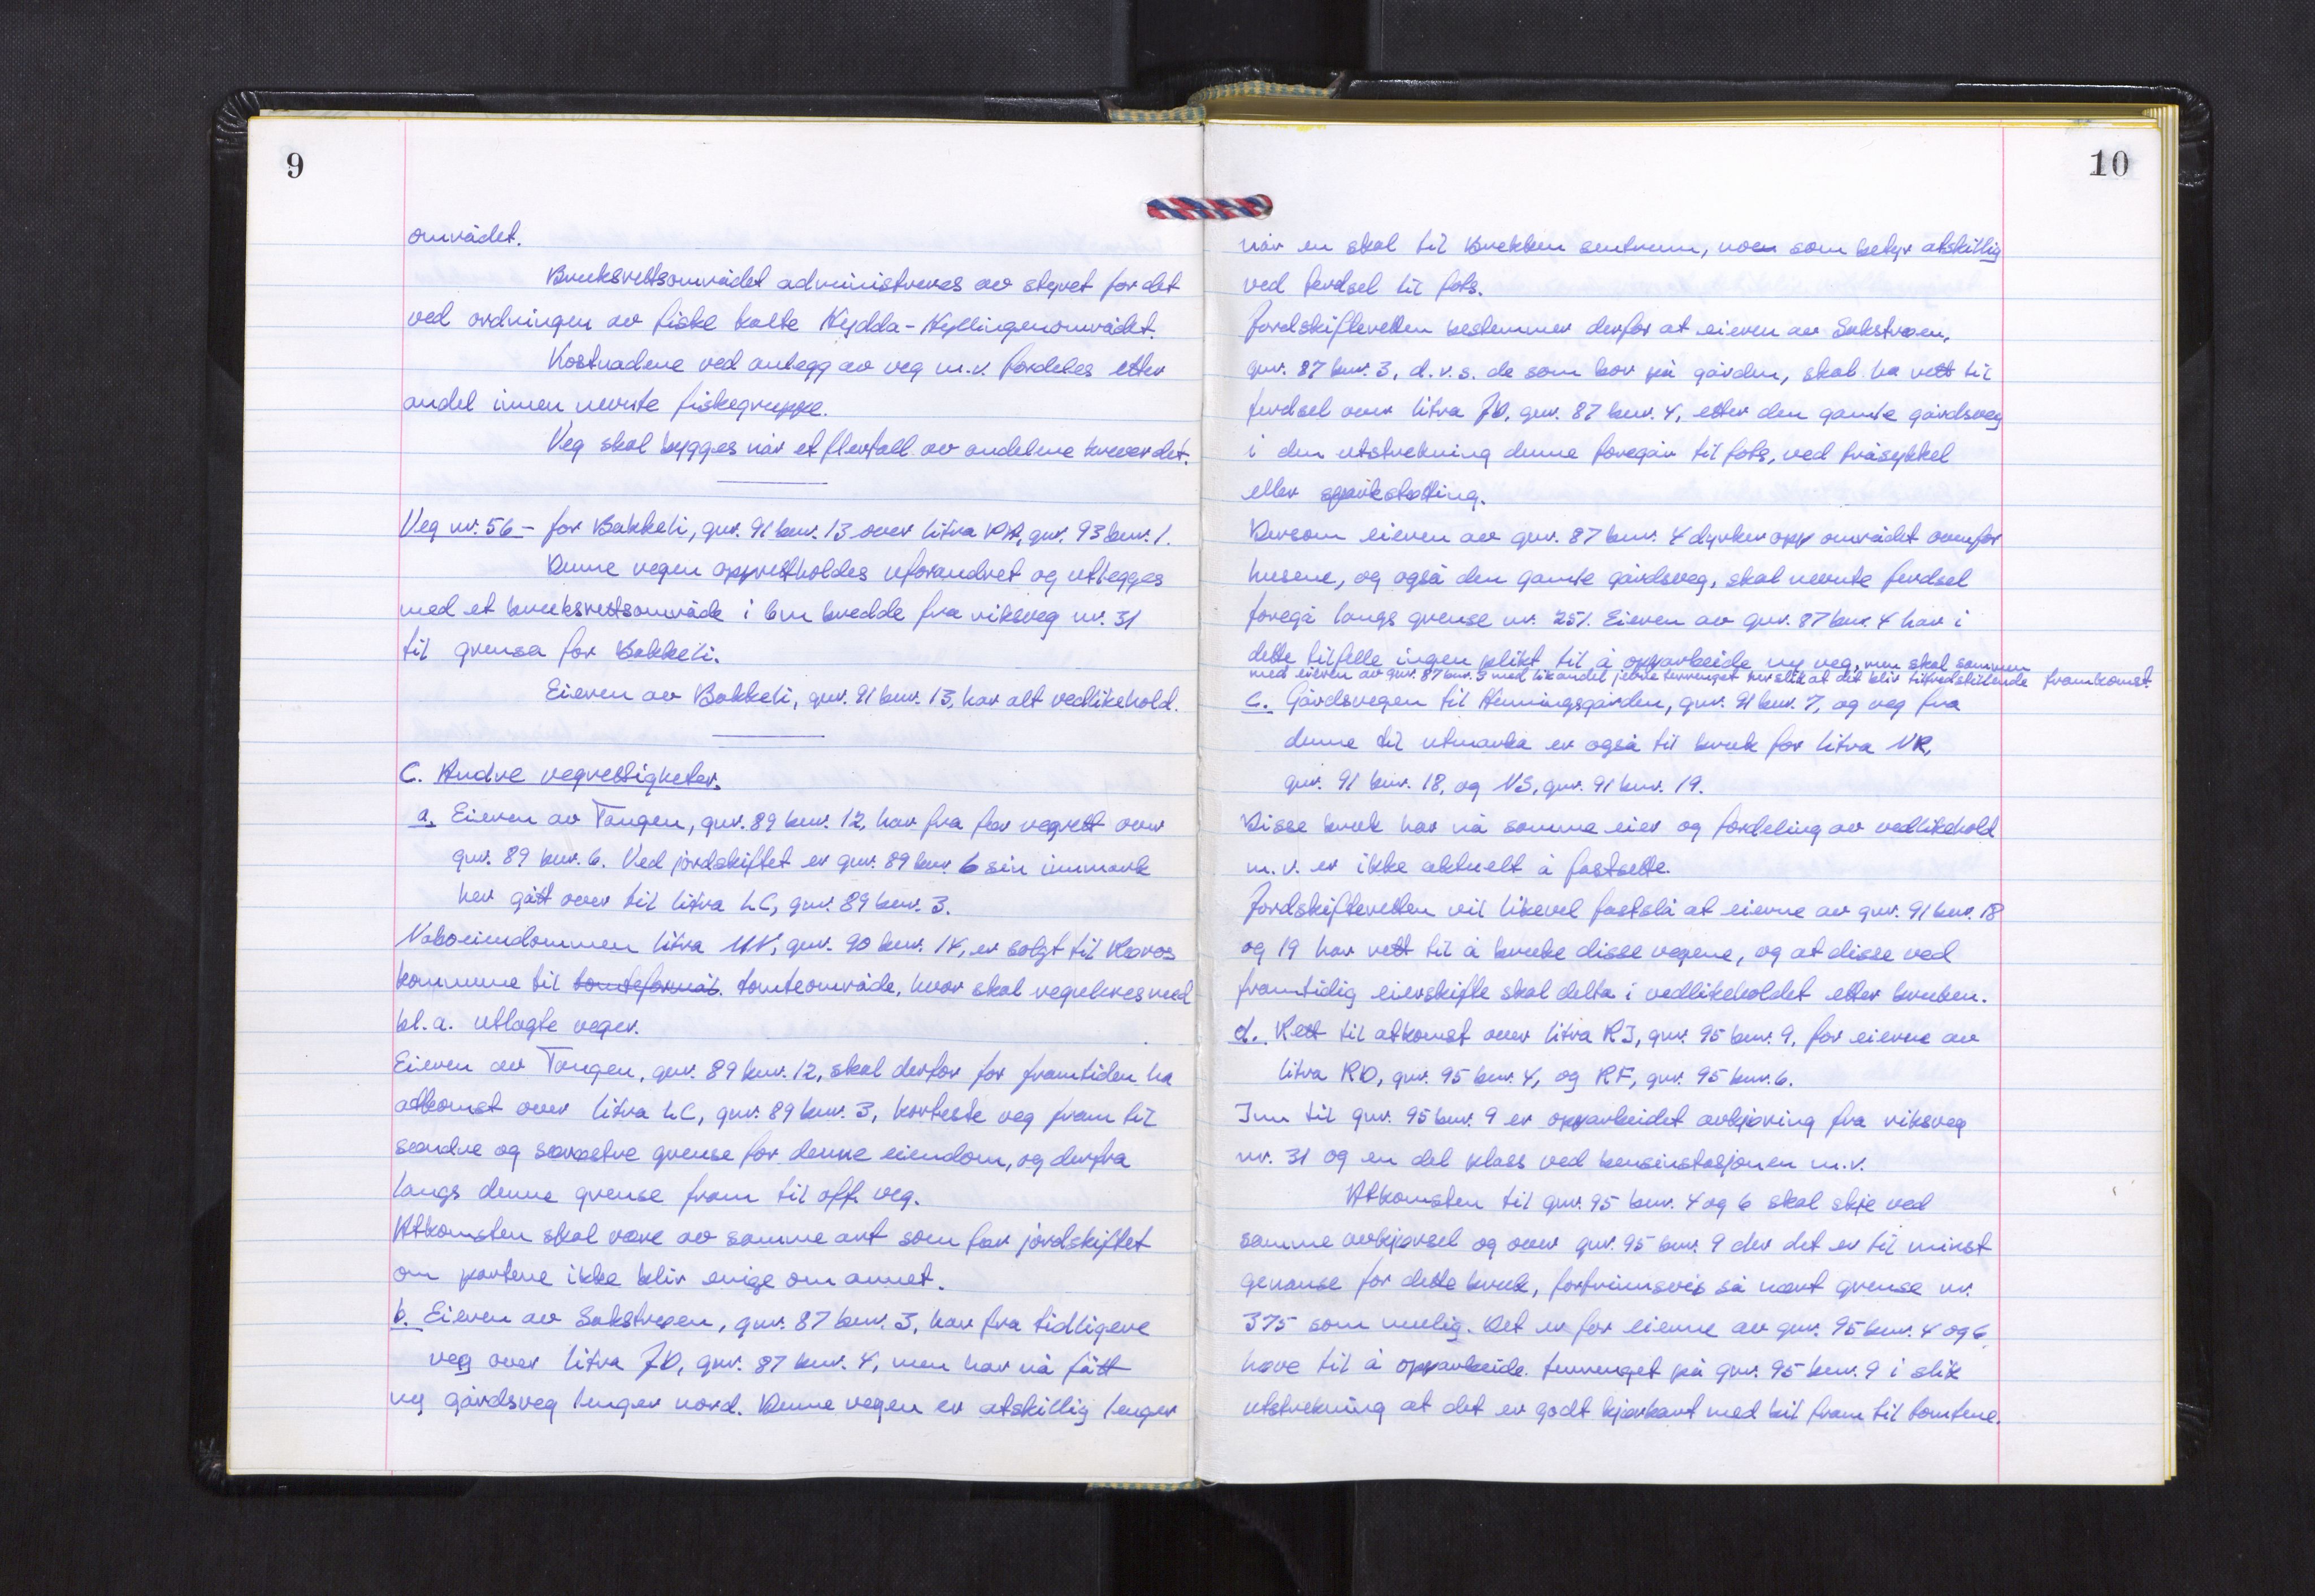 9
området.
Bruksrettsområdet administreres av styret for det
ved ordningen av fiske kalte Hydda-Hyllingenområdet.
Kostnadene ved anlegg av veg m.v. fordeles etter
andel innen nevnte fiskegruppe.
Veg skal bygges når et flertall av andelene krever det.
Veg nr. 56 - for Bakkeli, gnr. 91 bnr. 13 over litra PA, gnr. 93 bnr. 1.
Denne vegen opprettholdes uforandret og utlegges
med et bruksrettsområde i 6m bredde fra riksveg nr. 31
til grensa for Bakkeli.
Eieren av Bakkeli, gnr. 91 bnr. 13, har alt vedlikehold.
C. Andre vegrettigheter.
a. Eieren av Tangen, gnr. 89 bnr. 12, har fra før vegrett over
gnr. 89 bnr. 6. Ved jordskiftet er gnr. 89 bnr. 6 sin innmark
her gått over til litra LC, gnr. 89 bnr. 3.
Naboeiendommen litra MN, gnr. 90 bnr. 14, er solgt til Røros
kommune til tomteformål. tomteområde, hvor skal reguleres med
bl.a. utlagte veger.
Eieren av Tangen, gnr. 89 bnr. 12, skal derfor for framtiden ha
atkomst over litra LC, gnr. 89 bnr. 3, korteste veg fram til
søndre og sørøstre grense for denne eiendom, og derfra
langs denne grense fram til off. veg.
Atkomsten skal være av samme art som før jordskiftet
om partene ikke blir enige om annet.
b. Eieren av Sakstrøen, gnr. 87 bnr. 3, har fra tidligere
veg over litra JD, gnr. 87 bnr. 4, men har nå fått
ny gårdsveg lenger nord. Denne vegen er atskillig lenger
10
når en skal til Brekken sentrum, noen som betyr atskillig
ved ferdsel til fots.
Jordskifteretten bestemmer derfor at eieren av Sakstrøen,
gnr. 87 bnr. 3, d.v.s. de som bor på gården, skal ha rett til
ferdsel over litra JD, gnr. 87 bnr. 4, etter den gamle gårdsveg
i den utstrekning denne foregår til fots, ved tråsykkel
eller sparkstøtting.
Dersom eieren av gnr. 87 bnr. 4 dyrker opp området ovenfor
husene, og også den gamle gårdsveg, skal nevnte ferdsel
foregå langs grense nr. 251. Eieren av gnr. 87 bnr. 4 har i
dette tilfelle ingen plikt til å opparbeide ny veg, men skal sammen
med eieren av gnr. 87 bnr. 3 med lik andel jevne terrenget her slik at det blir tilfredstillende framkomst.
c. Gårdsvegen til Henningsgården, gnr. 91 bnr. 7, og veg fra
denne til utmarka er også til bruk for litra NR,
gnr. 91 bnr. 18, og NS, gnr. 91 bnr. 19.
Disse bruk har nå samme eier og fordeling av vedlikehold
m.v. er ikke aktuelt å fastsette.
Jordskifteretten vil likevel fastslå at eierne av gnr. 91 bnr. 18
og 19 har rett til å bruke disse vegene, og at disse ved
framtidig eierskifte skal delta i vedlikeholdet etter bruken.
d. Rett til atkomst over litra RI, gnr. 95 bnr. 9, for eierne av
litra RD, gnr. 95 bnr. 4, og RF, gnr. 95 bnr. 6.
Inn til gnr. 95 bnr. 9 er opparbeidet avkjøring fra riksveg
nr. 31 og en del plass ved bensinstasjonen m.v.
Atkomsten til gnr. 95 bnr. 4 og 6 skal skje ved
samme avkjørsel og over gnr. 95 bnr. 9 der det er til minst
genanse for dette bruk, fortrinnsvis så nært grense nr.
375 som mulig. Det er for eierne av gnr. 95 bnr. 4 og 6
høve til å opparbeide terrenget på gnr. 95 bnr. 9 i slik
utstrekning at det er godt kjørbart med bil fram til tomtene.